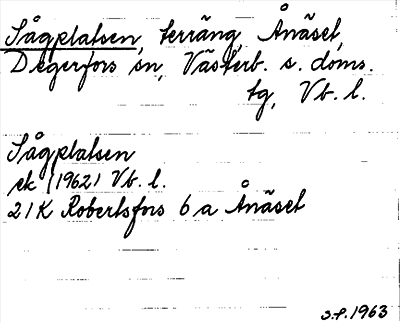 Sågplatsen, terräng, Ånäset,
Degerfors sn, Västerb. s. doms.
tg, Vb. l.
Sågplatsen
ek (1962) Vb. l.
21K Robertsfors 6 a Ånäset
S.P. 1963